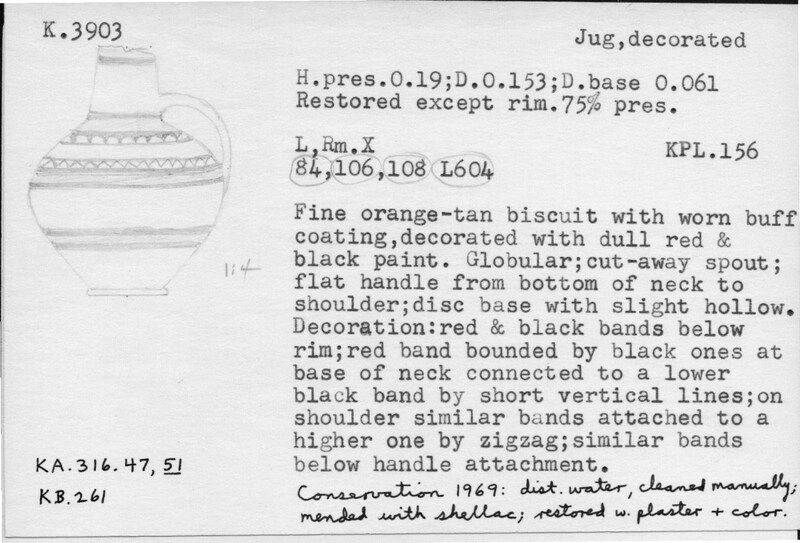 K.3903
Jug,decorated
H.pres.0.19;D.0.153;D.base 0.061
Restored except rim.75% pres.
L,Rm.X
KPL.156
84,106,108 L604
Fine orange-tan biscuit with worn buff
coating,decorated with dull red &
black paint. Globular;cut-away spout;
flat handle from bottom of neck to
shoulder;disc base with slight hollow.
Decoration:red & black bands below
rim;red band bounded by black ones at
base of neck connected to a lower
black band by short vertical lines;on
shoulder similar bands attached to a
higher one by zigzag;similar bands
below handle attachment.
1:4
KA.316.47, 51
KB.261
Conservation 1969: dist. water, cleaned manually;
mended with shellac; restored w. plaster + color.